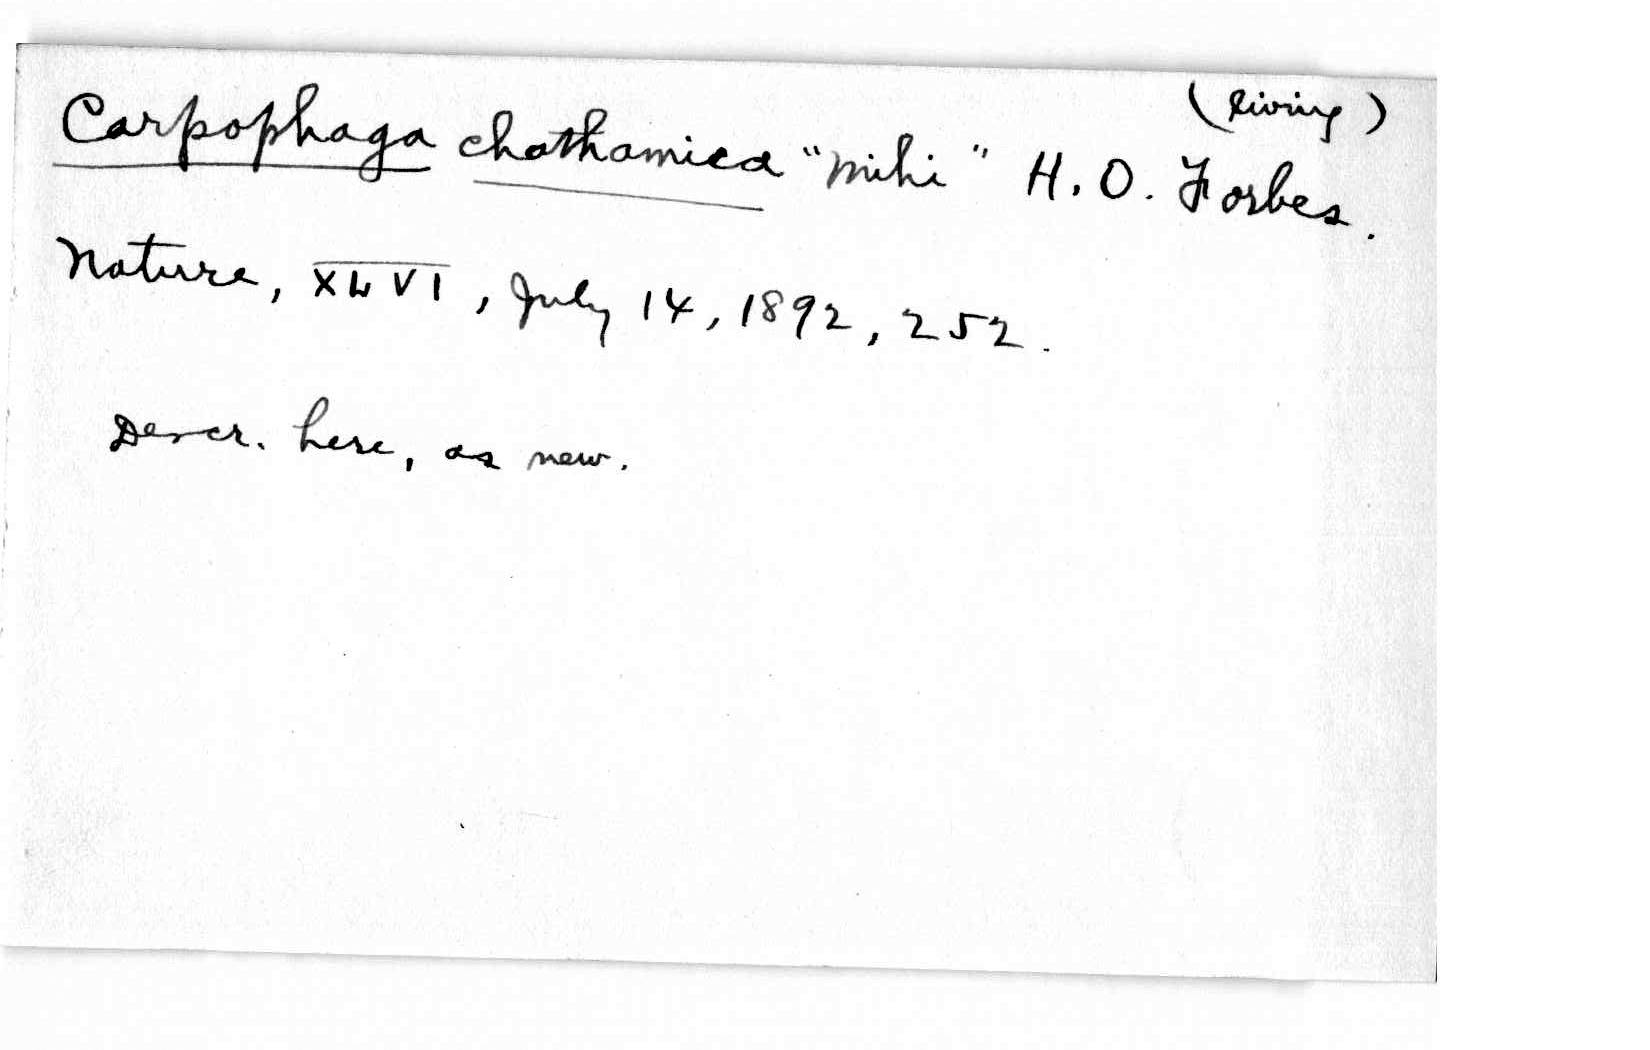 (living)
Carpophaga chathamica "mihi" H. O. Forbes.
Nature, XLVI, July 14, 1892, 252.
Descr. here, as new.